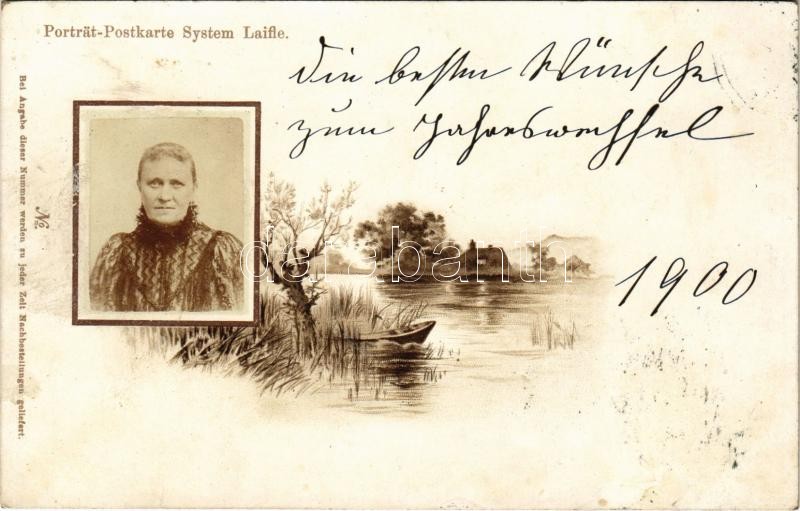 Porträt-Postkarte System Laifle.
Die besten Wünsche
zum Jahreswechsel
1900
No.
Bei Angabe dieser Nummer werden zu jeder Zeit Nachbestellungen geliefert.
darabanth.com